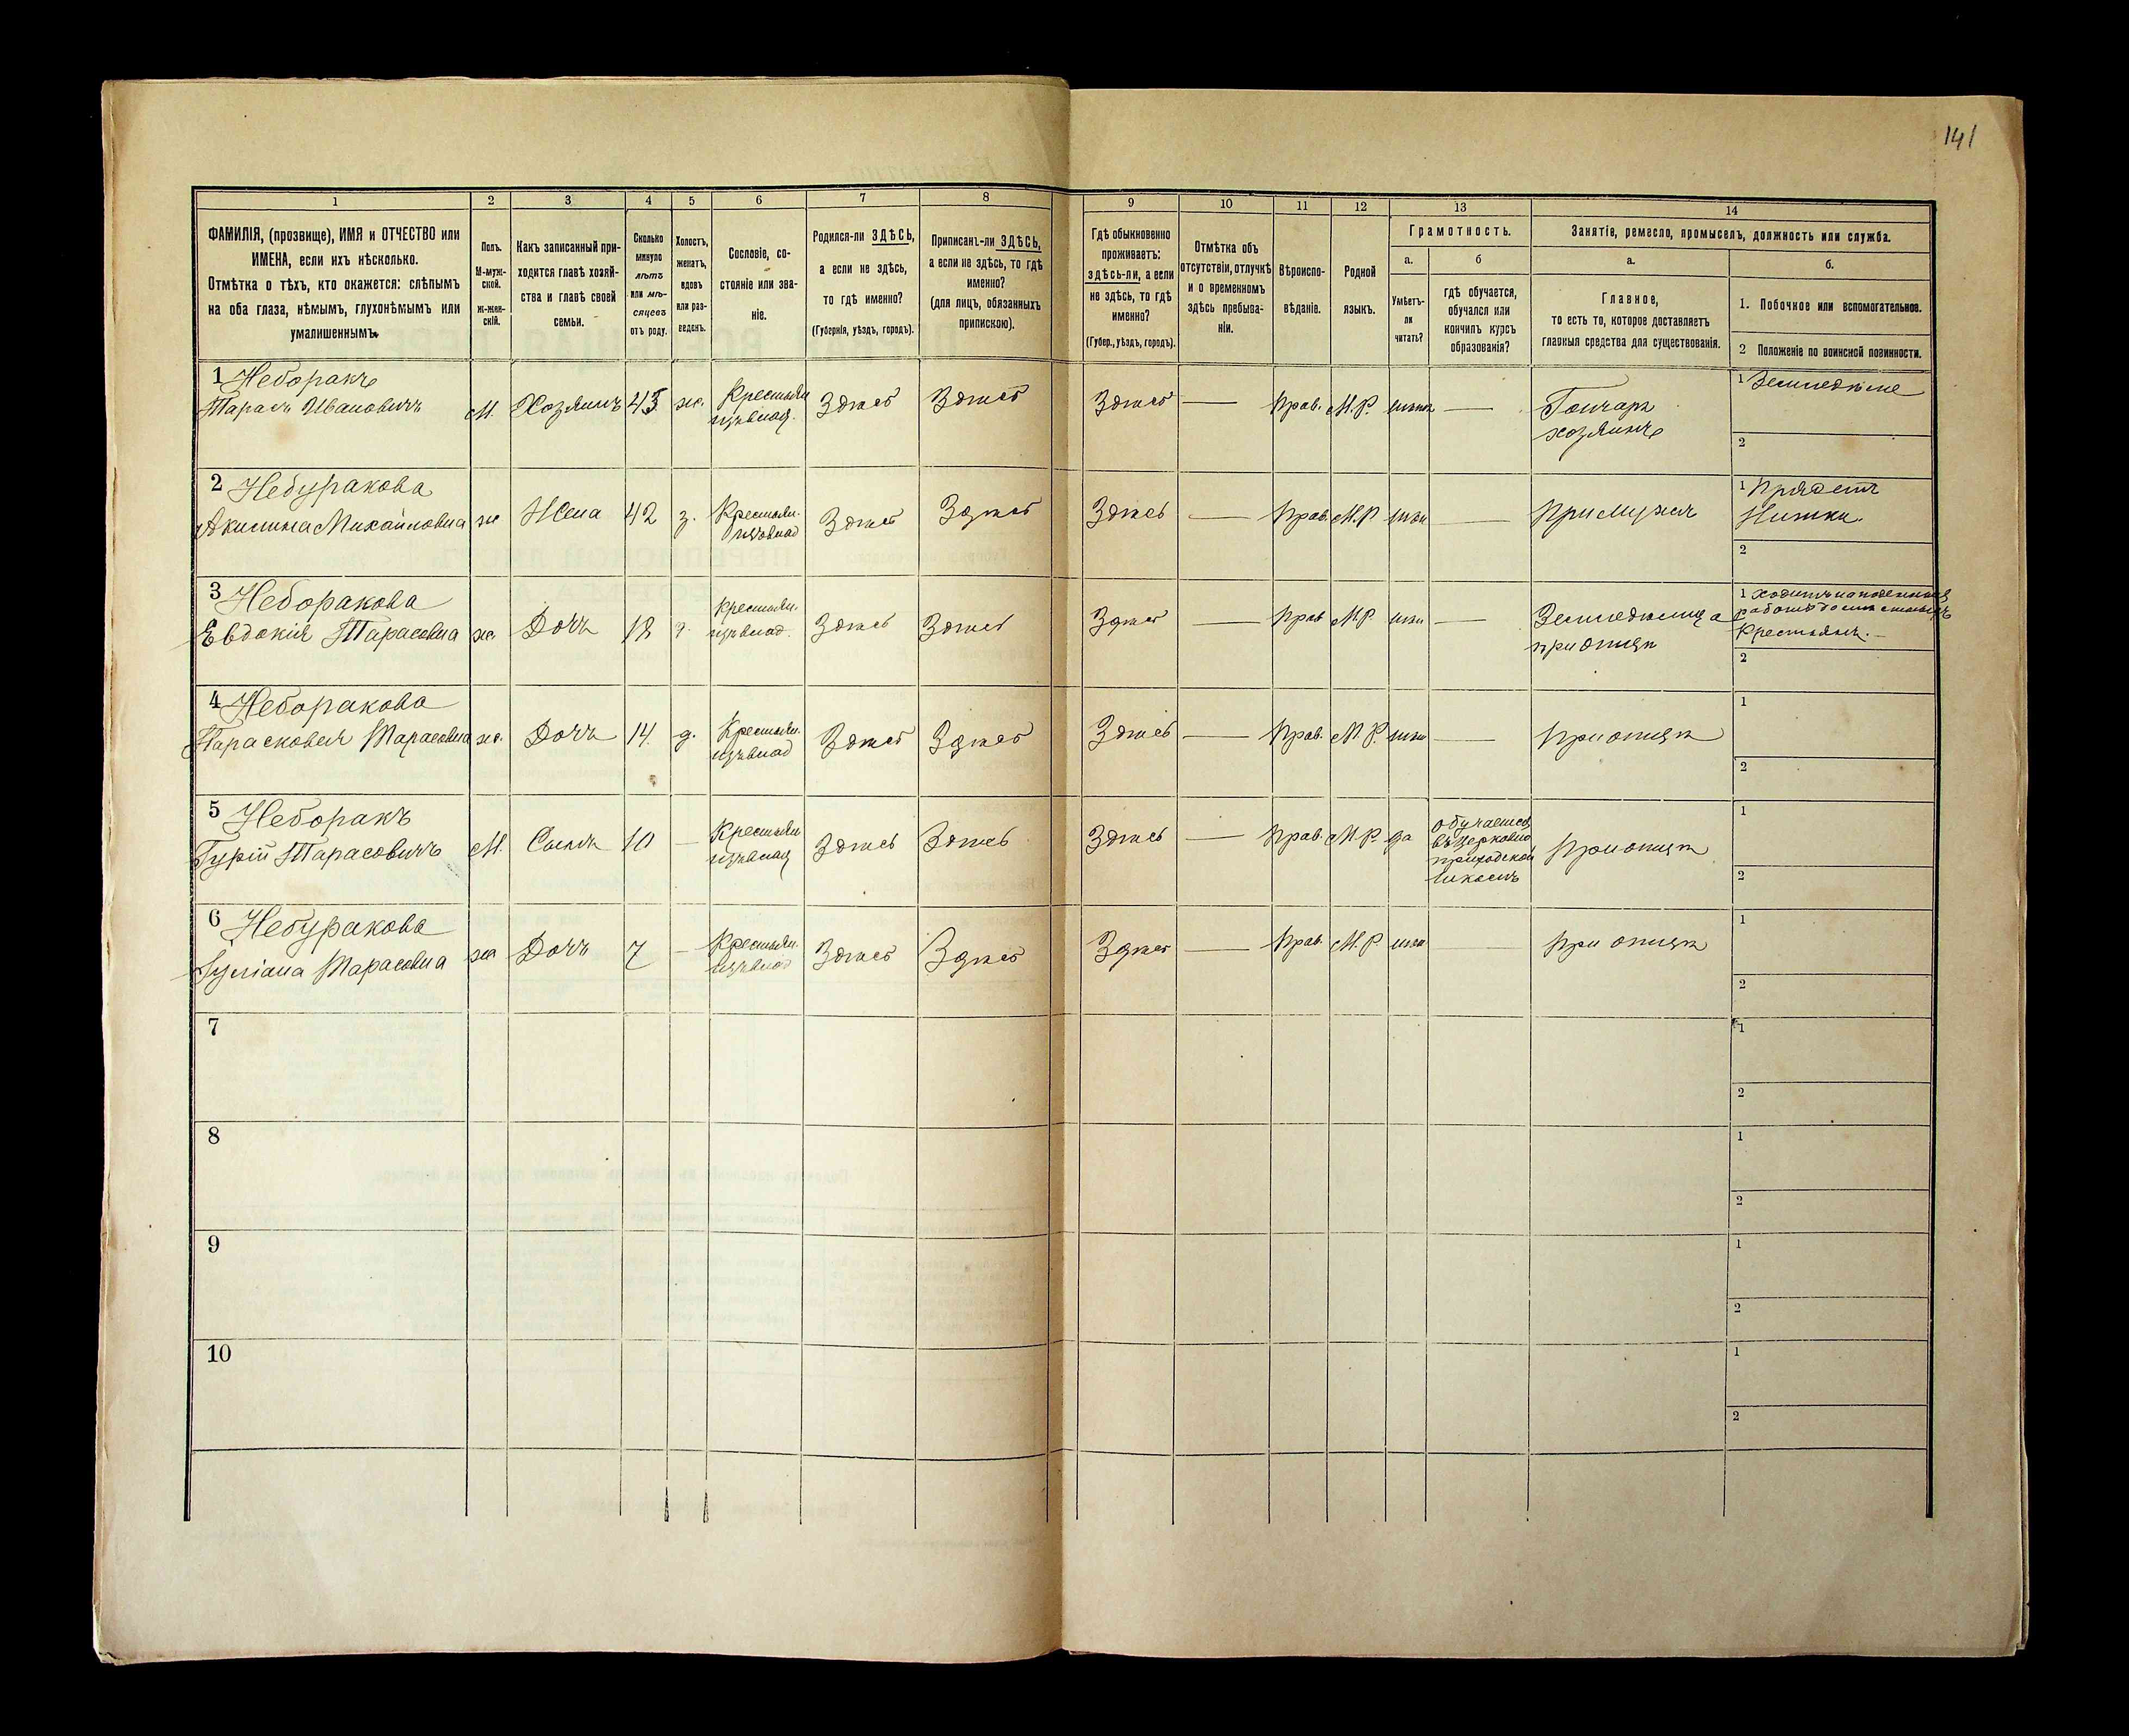 141
1
2
3
4
5
6
7
8
9
10
11
12
13
14
ФАМИЛІЯ, (прозвище), ИМЯ и ОТЧЕСТВО или
ИМЕНА, если ихъ нѣсколько.
Отмѣтка о тѣхъ, кто окажется: слѣпымъ
на оба глаза, нѣмымъ, глухонѣмымъ или
умалишеннымъ.
Полъ.
М-муж-
ской.
ж-жен-
скій.
Какъ записанный при-
ходится главѣ хозяй-
ства и главѣ своей
семьи.
Сколько
минуло
лѣтъ
или мѣ-
сяцевъ
отъ роду.
Холостъ,
женатъ,
вдовъ
или раз-
веденъ.
Сословіе, со-
стояніе или зва-
ніе.
Родился-ли ЗДѢСЬ,
а если не здѣсь,
то гдѣ именно?
(Губернія, уѣздъ, городъ).
Приписанъ-ли ЗДѢСЬ,
а если не здѣсь, то гдѣ
именно?
(для лицъ, обязанныхъ
припискою).
Гдѣ обыкновенно
проживаетъ:
здѣсь-ли, а если
не здѣсь, то гдѣ
именно?
(Губер., уѣздъ, городъ).
Отмѣтка объ
отсутствіи, отлучкѣ
и о временномъ
здѣсь пребыва-
ніи.
Вѣроиспо-
вѣданіе.
Родной
языкъ.
Грамотность.
а.
Умѣетъ-
ли
читать?
б
гдѣ обучается,
обучался или
кончилъ курсъ
образованія?
Занятіе, ремесло, промыселъ, должность или служба.
а.
Главное,
то есть то, которое доставляетъ
главныя средства для существованія.
б.
1. Побочное или вспомогательное.
2 Положеніе по воинской повинности.
1 Неборакъ
Тарасъ Ивановичъ
М.
Хозяинъ
45
ж.
Крестьян
изъ влад.
Здѣсь
Здѣсь
Здѣсь
—
Прав.
М.Р.
—
Гончаръ
хозяинъ
1 Земледѣліе
2
2 Небуракова
Акилина Михайловна
ж
Жена
42
з.
Крестьян.
изъ влад
Здѣсь
Здѣсь
Здѣсь
—
Прав.
М.Р
—
При мужѣ
1 Прядетъ
Нитки.
2
3 Неборакова
Евдокія Тарасовна
ж.
Дочь
18
д.
Крестьян.
изъ влад.
Здѣсь
Здѣсь
Здѣсь
—
Прав
М.Р.
—
Земледѣлица
при отцѣ
1
Крестьянъ.—
2
4 Неборакова
Парасковея Тарасовна
ж.
Дочь
14.
д.
Крестьян.
изъ влад
Здѣсь
Здѣсь
Здѣсь
—
Прав.
М.Р.
—
при отцѣ
1
2
5 Неборакъ
Гурій Тарасовичъ
М.
Сынъ
10
—
Крестьян
изъ влад
Здѣсь
Здѣсь
Здѣсь
—
Прав.
М.Р.
да
Обучается
въ церковно
приходской
школѣ
При отцѣ
1
2
6 Небуракова
Іуліана Тарасовна
ж
Дочь
7
—
Крестьян.
изъ влад
Здѣсь
Здѣсь
Здѣсь
—
Прав.
М.Р.
—
при отцѣ
1
2
7
1
2
8
1
2
9
1
2
10
1
2